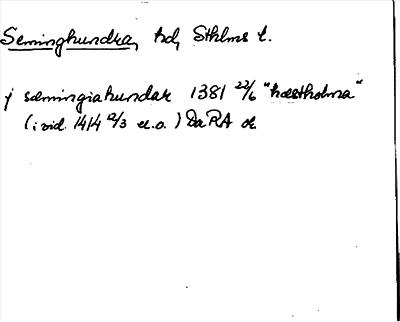 Seminghundra, hd, Sthlms l.
j sæmingiahundar 1381 22/6 "hæstholma"
(i vid. 1414 12/3 u.o.) Da RA or